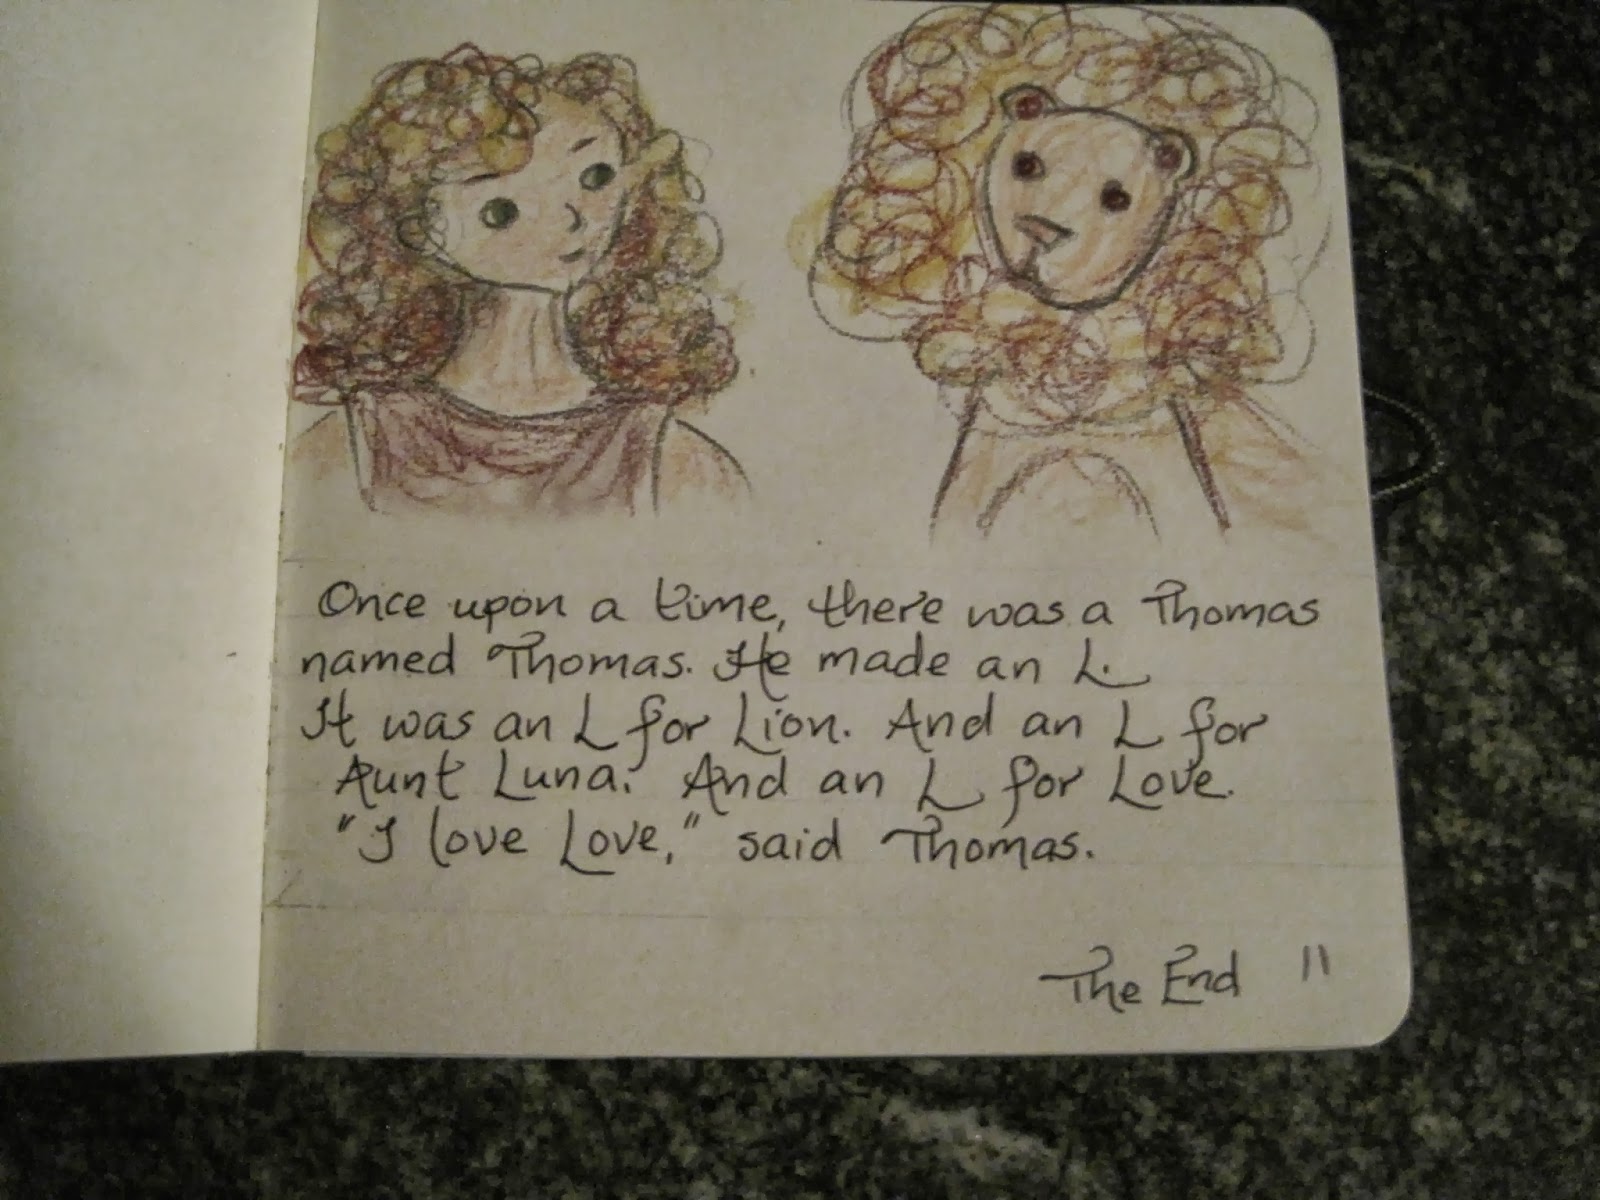 Once upon a time, there was a Thomas
named Thomas. He made an L.
It was an L for Lion. And an L for
Aunt Luna. And an L for Love.
"I love Love," said Thomas.
The End 11